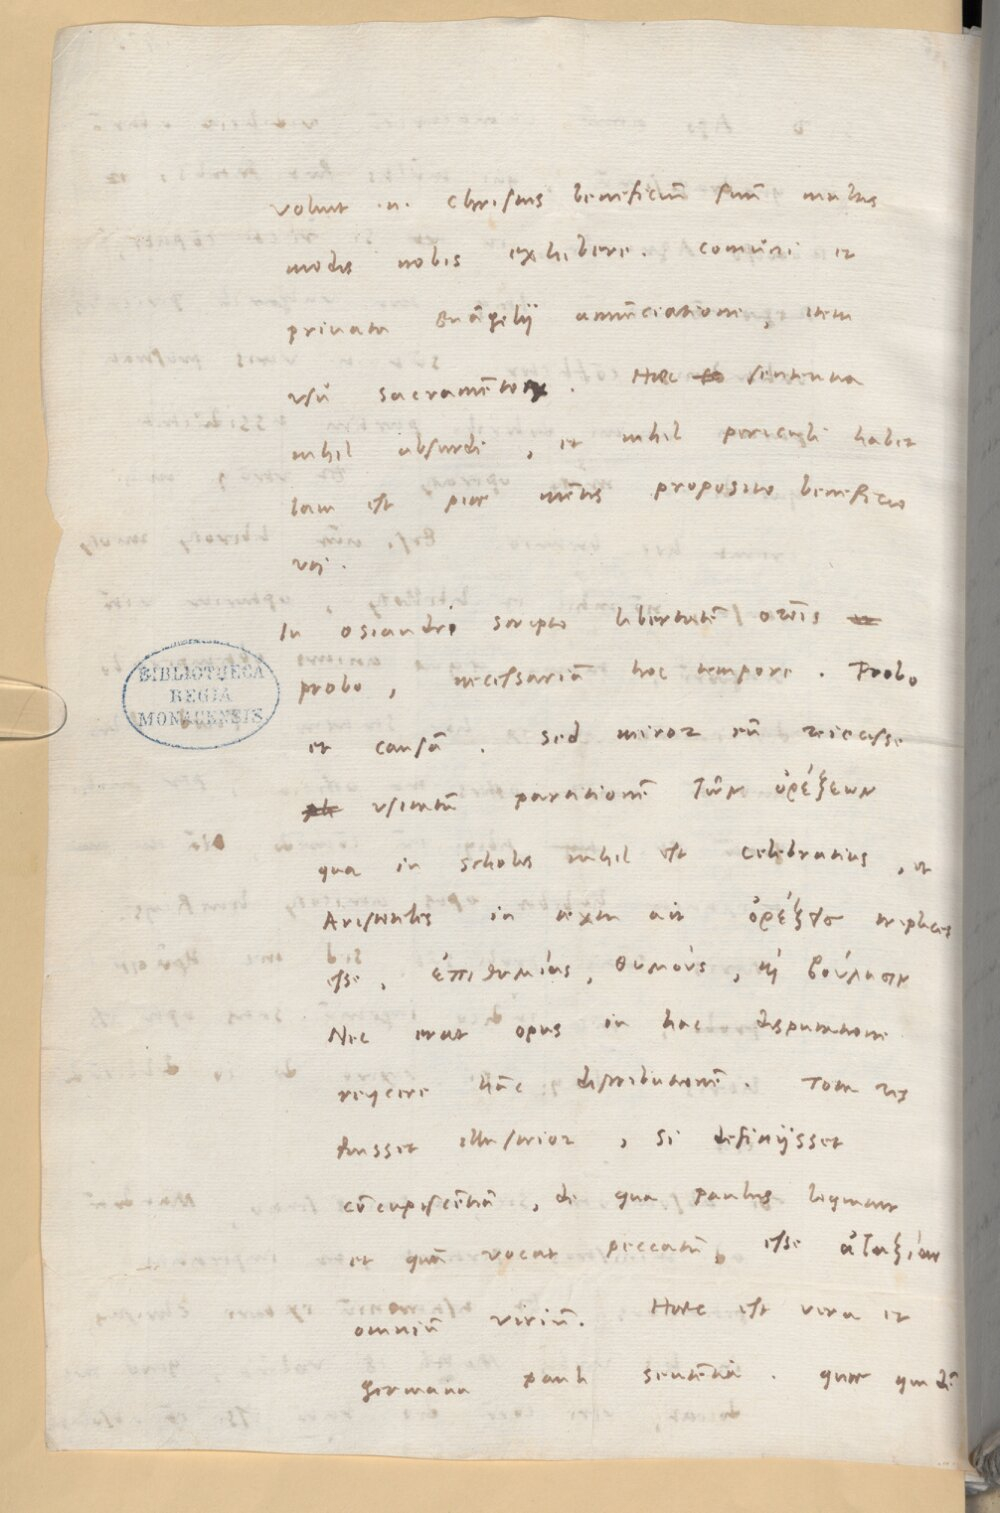 voluit .n. Christus beneficiũ suũ multis
modis nobis exhibere. comuni et
privata Euãgelij annũciatione, item
usũ sacramẽtorum. Haec sententia
nihil absurdi, et nihil periculi habet
Iam est piae mẽtis proposito beneficio
uti.
In osiandri scripto libertatẽ orõis
probo, necessariã hoc tempore. Probo
et causã. Sed miror eũ reiecisse
usitatã partitionẽ τῶν ὀρέξεων
qua in scholis nihil est celebratius, et
Aristoteles in ait ὀρέξεις triplices
esse, ἐπιθυμίας, θυμούς, καὶ βούλησιν
Nec erat opus in hac disputatione
reijcere hãc distributionẽ. Tota res
fuisset illustrior, si definijsset
cõcupiscẽtiã, de qua paulus loquitur
et quã vocat peccatũ, esse ἀταξίαν
omniũ viriũ. Haec est vera et
germana pauli sentẽtia. quae quidẽ
BIBLIOTHECA
REGIA
MONACENSIS